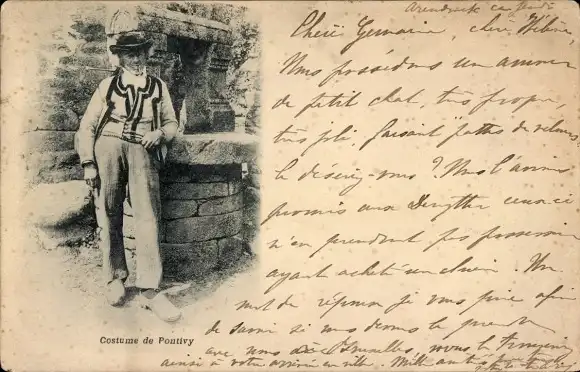 Chère Germaine, chère Hélène,
Nous possédons un amour
de petit chat, très propre,
très joli, faisant "pattes de velours"
le désirez-vous? Nous l'avions
promis aux ceux-ci
n'en prendront pas possession
ayant acheté un chien. Un
mot de réponse je vous prie afin
de savoir si nous devons le prendre
avec nous à Bruxelles, vous le
ainsi à votre arrivée en ville. Mille
Costume de Pontivy